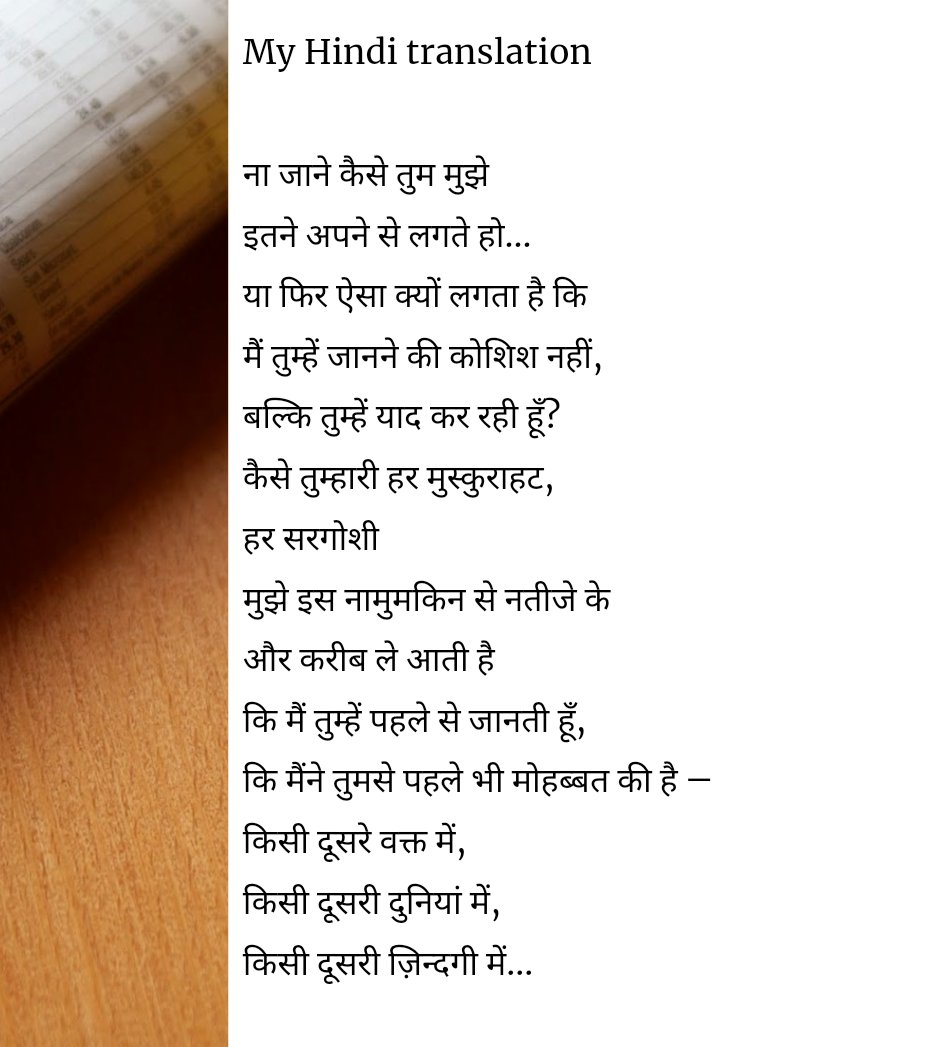 My Hindi translation
ना जाने कैसे तुम मुझे
इतने अपने से लगते हो...
या फिर ऐसा क्यों लगता है कि
मैं तुम्हें जानने की कोशिश नहीं,
बल्कि तुम्हें याद कर रही हूँ?
कैसे तुम्हारी हर मुस्कुराहट,
हर सरगोशी
मुझे इस नामुमकिन से नतीजे के
और करीब ले आती है
कि मैं तुम्हें पहले से जानती हूँ,
कि मैंने तुमसे पहले भी मोहब्बत की है –
किसी दूसरे वक्त में,
किसी दूसरी दुनियां में,
किसी दूसरी ज़िन्दगी में...